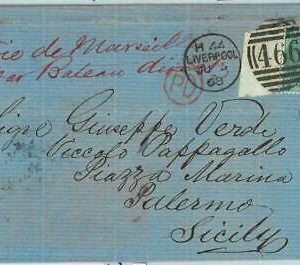 de Marseille
Bateau
H 44
LIVERPOOL
68
466
PD
Giuseppe Verde
Viccolo Pappagallo
Piazza Marina
Palermo
Sicily